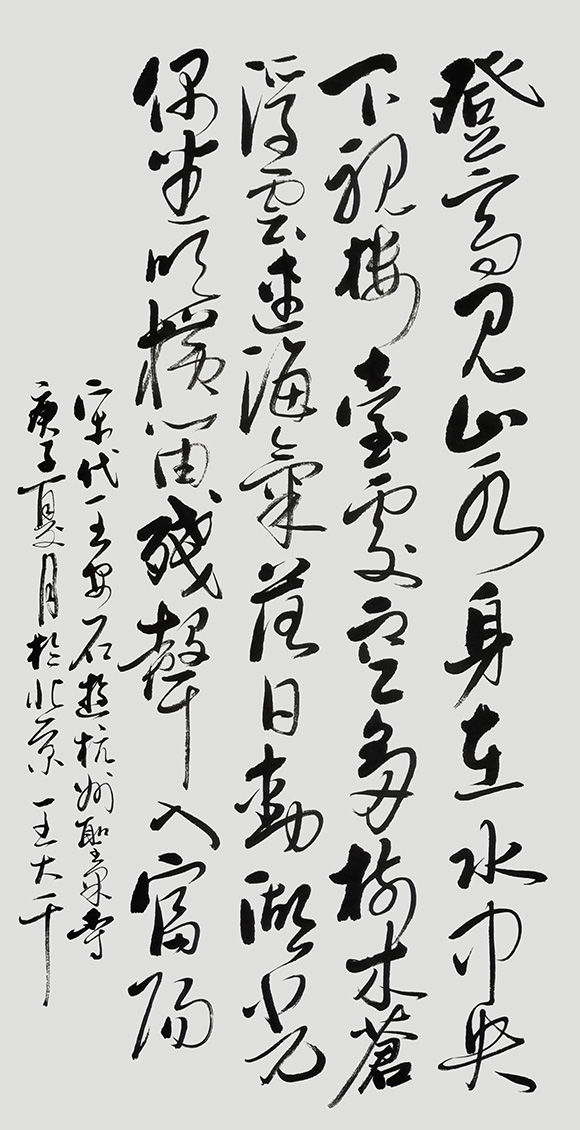 登高見山水身在水中央
下視樓臺處空多樹木蒼
浮雲連海氣落日動湖光
偶坐吹橫笛殘聲入富陽
宋代王安石遊杭州聖果寺
庚子夏月於北京王大千